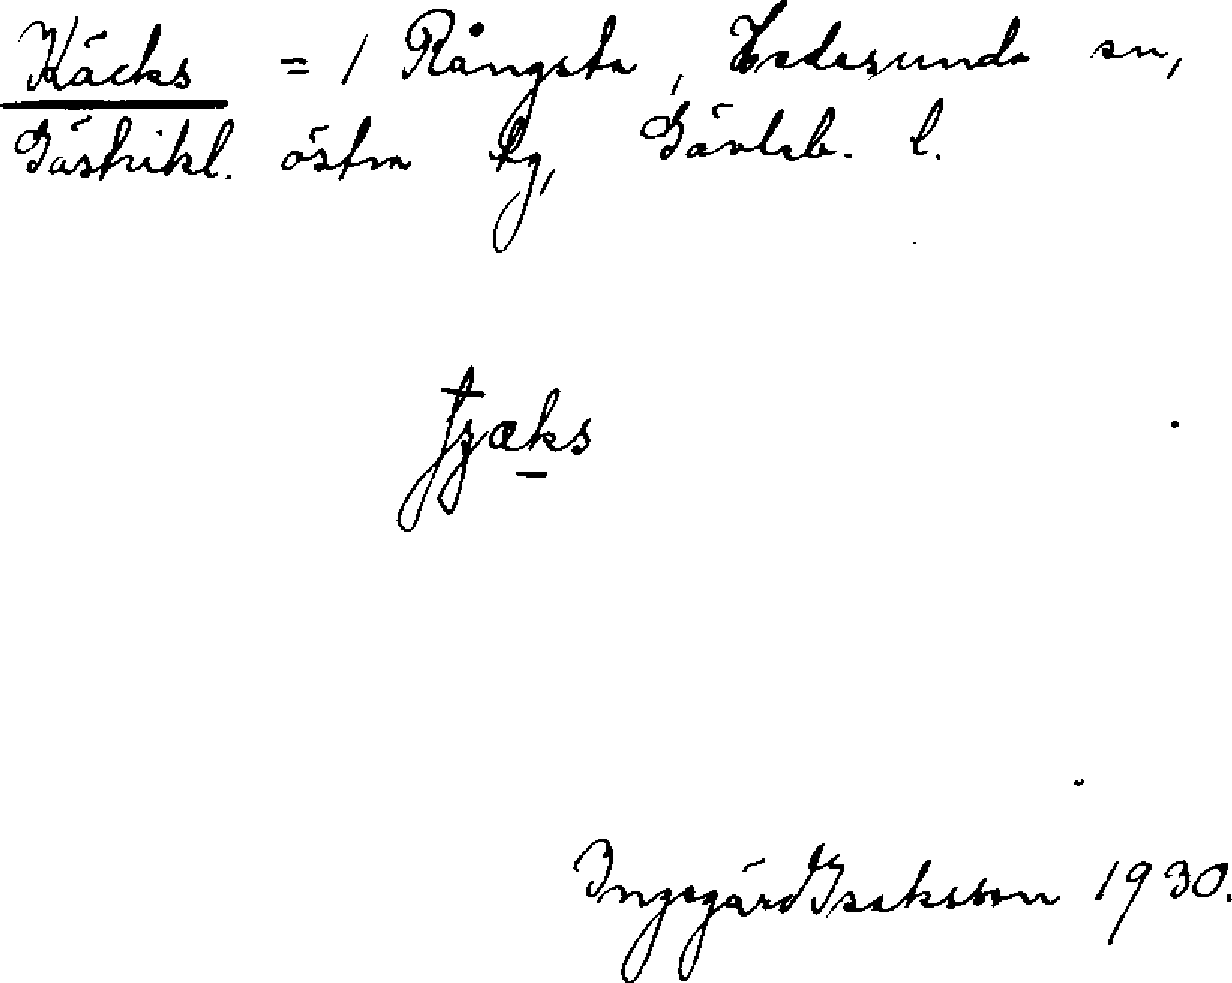 Käcks = 1 Rångsta, Hedesunda sn,
Gästrikl. östra tg, Gävleb. l.
Ingegärd Isaksson 1930.